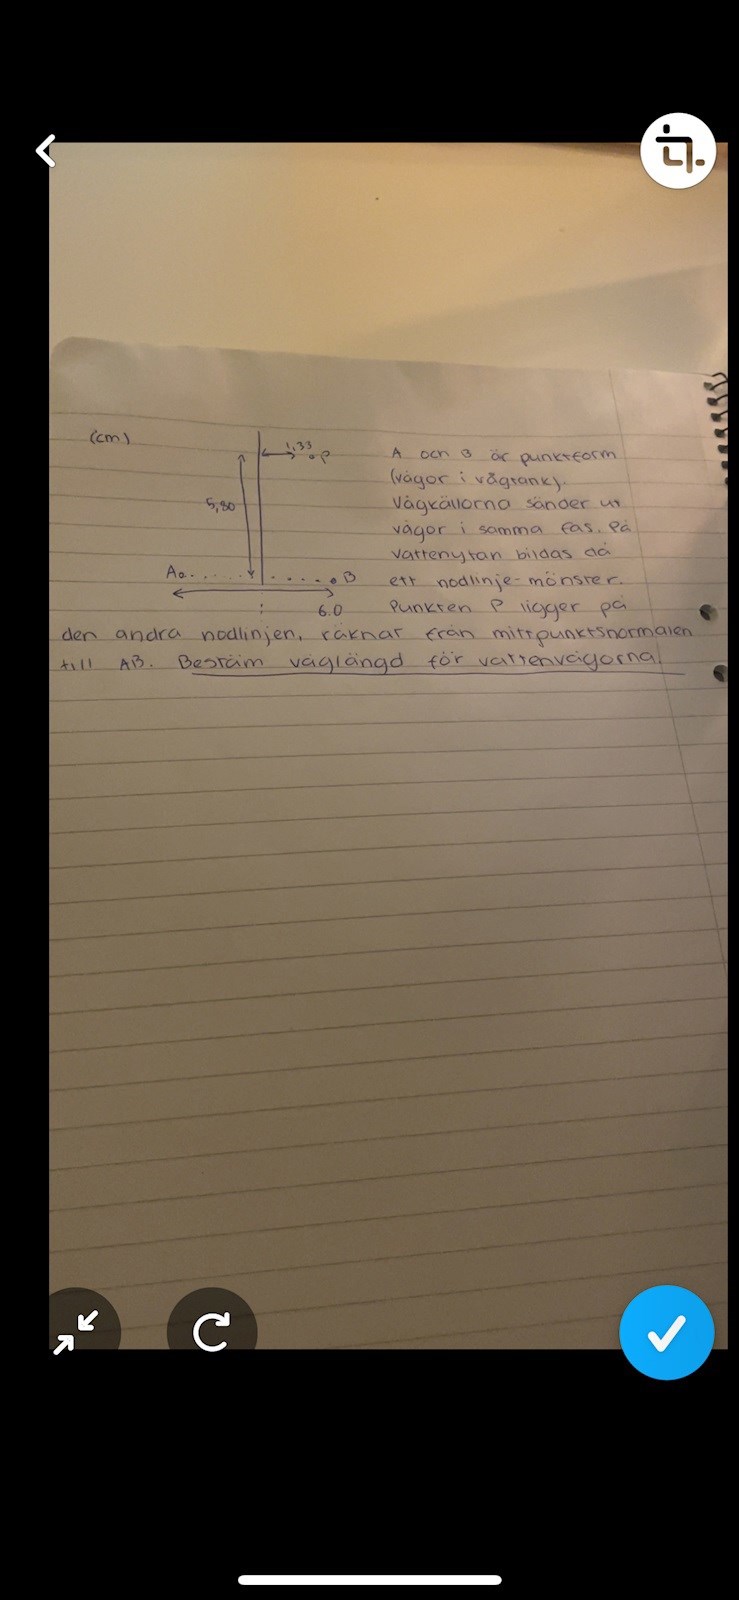 (cm)
1,33
P
5,80
A
B
6.0
A och B är punktform
(vågor i vågtank).
Vågkällorna sänder ut
vågor i samma fas. På
vattenytan bildas då
ett nodlinje-mönster.
Punkten P ligger på
den andra nodlinjen, räknar från mittpunktsnormalen
till AB. Bestäm våglängd för vattenvågorna.